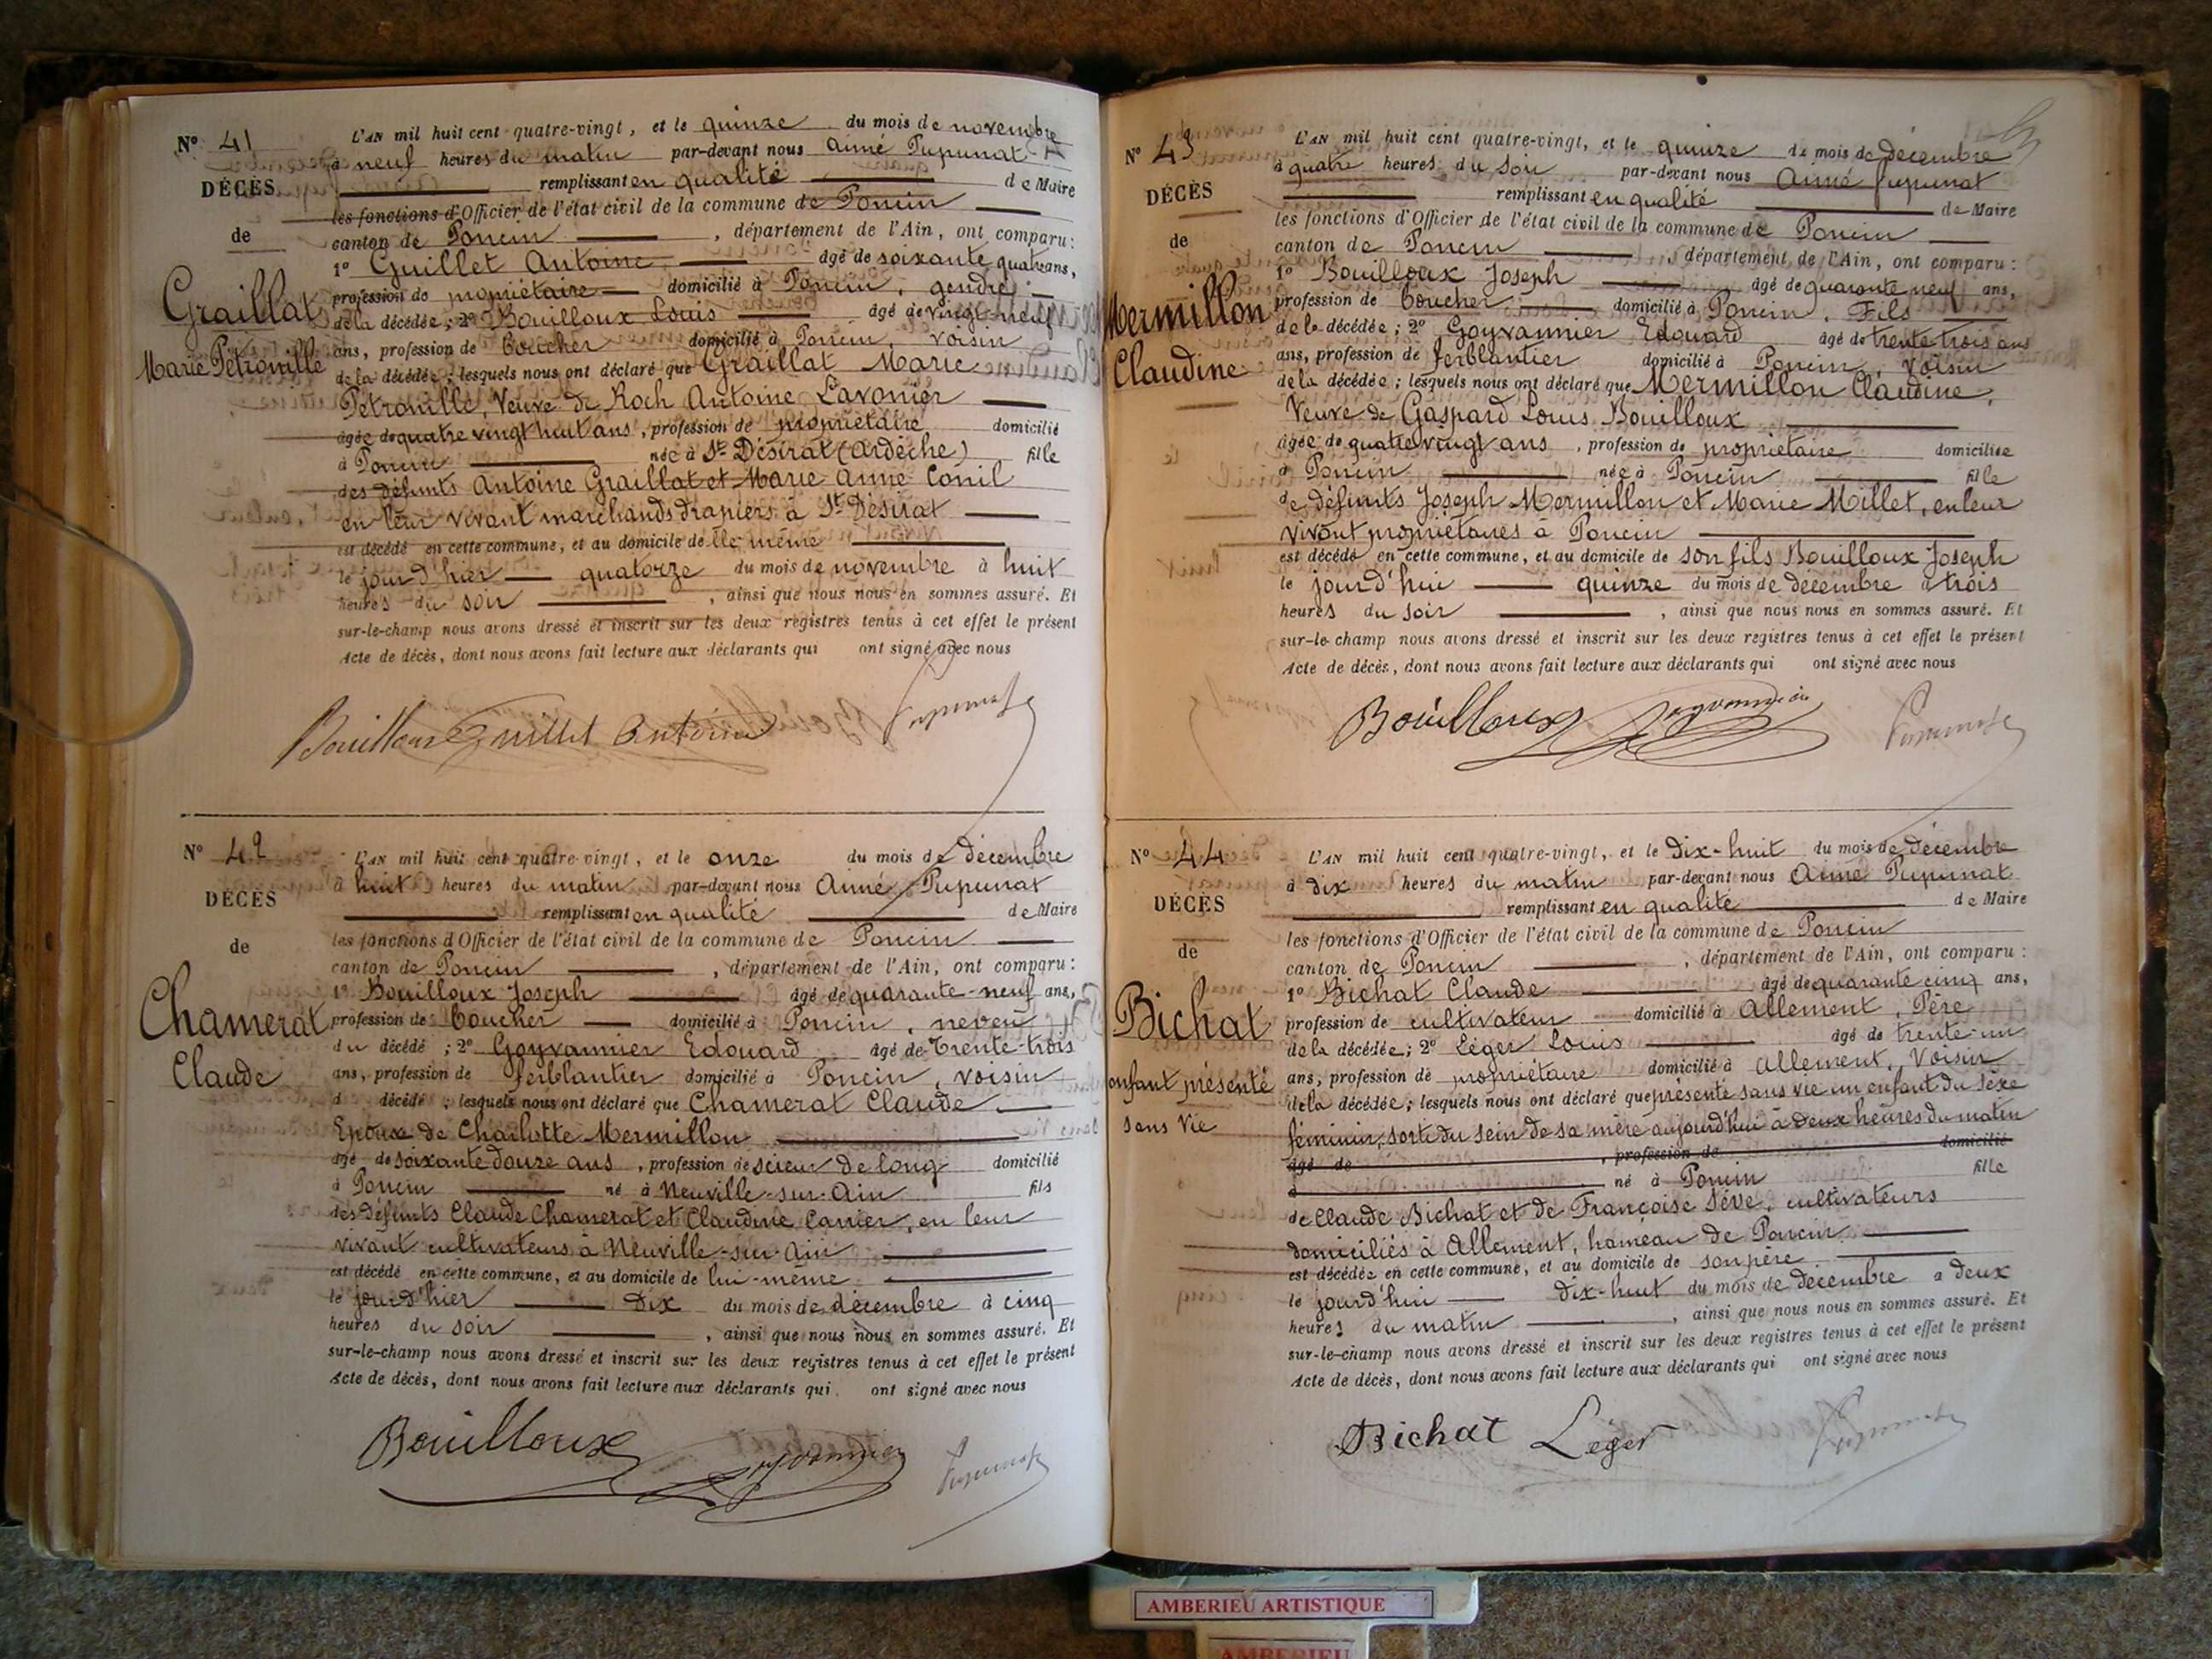 N° 41
DÉCÈS
de
Graillat
Marie Pétronille
L'AN mil huit cent quatre-vingt, et le quinze du mois de novembre
à neuf heures du matin par-devant nous Aimé Pupunat
remplissant en qualité de Maire
les fonctions d'Officier de l'état civil de la commune de Poncin
canton de Poncin, département de l'Ain, ont comparu :
1° Guillet Antoine âgé de soixante quatre ans,
profession de propriétaire domicilié à Poncin, gendre
de la décédée ; 2° Bouilloux Louis âgé de vingt-neuf
ans, profession de boucher domicilié à Poncin, voisin
de la décédée ; lesquels nous ont déclaré que Graillat Marie
Pétronille, Veuve de Roch Antoine Lavonier
âgée de quatre vingt huit ans, profession de propriétaire domicilié
à Poncin née à St Désirat (Ardèche) fille
des défunts Antoine Graillat et Marie Anne Conil
en leur vivant marchands drapiers à St Désirat
est décédé en cette commune, et au domicile de elle même
le jour d'hier quatorze du mois de novembre à huit
heures du soir, ainsi que nous nous en sommes assuré. Et
sur-le-champ nous avons dressé et inscrit sur les deux registres tenus à cet effet le présent
Acte de décès, dont nous avons fait lecture aux déclarants qui ont signé avec nous
Bouilloux Guillet Antoine Pupunat
N° 42
DÉCÈS
de
Chamerat
Claude
L'AN mil huit cent quatre-vingt, et le onze du mois de décembre
à huit heures du matin par-devant nous Aimé Pupunat
remplissant en qualité de Maire
les fonctions d'Officier de l'état civil de la commune de Poncin
canton de Poncin, département de l'Ain, ont comparu :
1° Bouilloux Joseph âgé de quarante-neuf ans,
profession de boucher domicilié à Poncin, neveu
du décédé ; 2° Goyvannier Edouard âgé de trente-trois
ans, profession de ferblantier domicilié à Poncin, voisin
d décédé ; lesquels nous ont déclaré que Chamerat Claude
Epoux de Charlotte Mermillon
âgé de soixante douze ans, profession de scieur de long domicilié
à Poncin né à Neuville-sur-Ain fils
des défunts Claude Chamerat et Claudine Carrier, en leur
vivant cultivateurs à Neuville-sur-Ain
est décédé en cette commune, et au domicile de lui-même
le jour d'hier dix du mois de décembre à cinq
heures du soir, ainsi que nous nous en sommes assuré. Et
sur-le-champ nous avons dressé et inscrit sur les deux registres tenus à cet effet le présent
Acte de décès, dont nous avons fait lecture aux déclarants qui ont signé avec nous
Bouilloux Goyvannier Pupunat
N° 43
DÉCÈS
de
Mermillon
Claudine
L'AN mil huit cent quatre-vingt, et le quinze du mois de décembre
à quatre heures du soir par-devant nous Aimé Pupunat
remplissant en qualité de Maire
les fonctions d'Officier de l'état civil de la commune de Poncin
canton de Poncin, département de l'Ain, ont comparu :
1° Bouilloux Joseph âgé de quarante neuf ans,
profession de boucher domicilié à Poncin, Fils
de la décédée ; 2° Goyvannier Edouard âgé de trente trois ans
ans, profession de ferblantier domicilié à Poncin, voisin
de la décédée ; lesquels nous ont déclaré que Mermillon Claudine,
Veuve de Gaspard Louis Bouilloux
âgée de quatre vingt ans, profession de propriétaire domiciliée
à Poncin née à Poncin fille
de défunts Joseph Mermillon et Marie Millet, en leur
vivant propriétaires à Poncin
est décédé en cette commune, et au domicile de son fils Bouilloux Joseph
le jourd'hui quinze du mois de décembre à trois
heures du soir, ainsi que nous nous en sommes assuré. Et
sur-le-champ nous avons dressé et inscrit sur les deux registres tenus à cet effet le présent
Acte de décès, dont nous avons fait lecture aux déclarants qui ont signé avec nous
Bouilloux Goyvannier Pupunat
N° 44
DÉCÈS
de
Bichat
enfant présenté
sans vie
L'AN mil huit cent quatre-vingt, et le dix-huit du mois de décembre
à dix heures du matin par-devant nous Aimé Pupunat
remplissant en qualité de Maire
les fonctions d'Officier de l'état civil de la commune de Poncin
canton de Poncin, département de l'Ain, ont comparu :
1° Bichat Claude âgé de quarante cinq ans,
profession de cultivateur domicilié à Allement, Père
de la décédée ; 2° Léger Louis âgé de trente-un
ans, profession de propriétaire domicilié à Allement, Voisin
de la décédée ; lesquels nous ont déclaré que présenté sans vie un enfant du sexe
féminin, sorti du sein de sa mère aujourd'hui à deux heures du matin
âgé de, profession de domicilié
à né à Poncin fille
de Claude Bichat et de Françoise Sève, cultivateurs
domiciliés à Allement, hameau de Poncin
est décédée en cette commune, et au domicile de son père
le jourd'hui dix-huit du mois de décembre à deux
heures du matin, ainsi que nous nous en sommes assuré. Et
sur-le-champ nous avons dressé et inscrit sur les deux registres tenus à cet effet le présent
Acte de décès, dont nous avons fait lecture aux déclarants qui ont signé avec nous
Bichat Léger Pupunat
AMBERIEU ARTISTIQUE
AMBERIEU